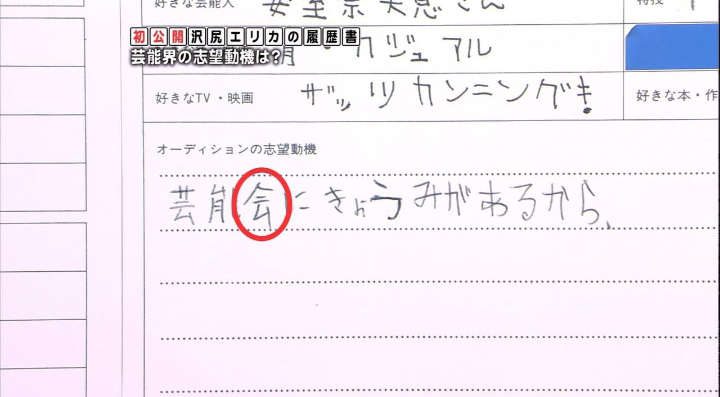 好きな芸能人 安室奈美恵さん
特技
初公開沢尻エリカの履歴書
芸能界の志望動機は?
・カジュアル
好きなTV・映画 ザッツカンニングまき
好きな本・作
オーディションの志望動機
芸能会にきょうみがあるから、